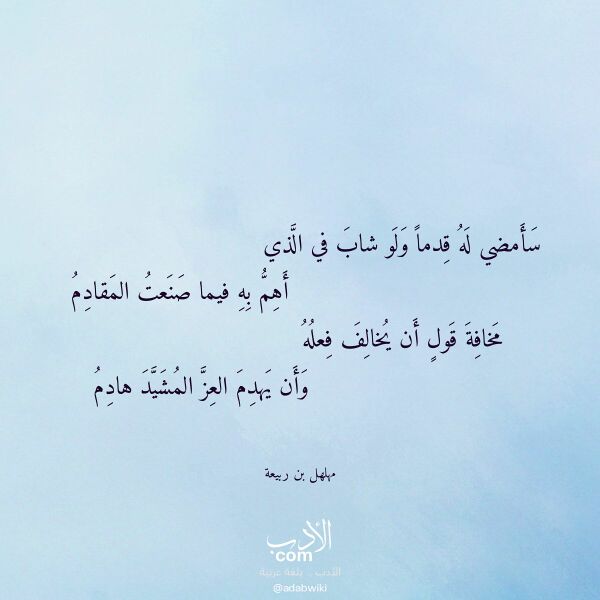 سَأَمضي لَهُ قِدماً وَلَو شابَ في الَّذي
أَهِمُّ بِهِ فيما صَنَعتُ المَقادِمُ
مَخافَةَ قَولٍ أَن يُخالِفَ فِعلُهُ
وَأَن يَهدِمَ العِزَّ المُشَيَّدَ هادِمُ
مهلهل بن ربيعة
الأدب
com
الأدب .. بلغة عربية
@adabwiki